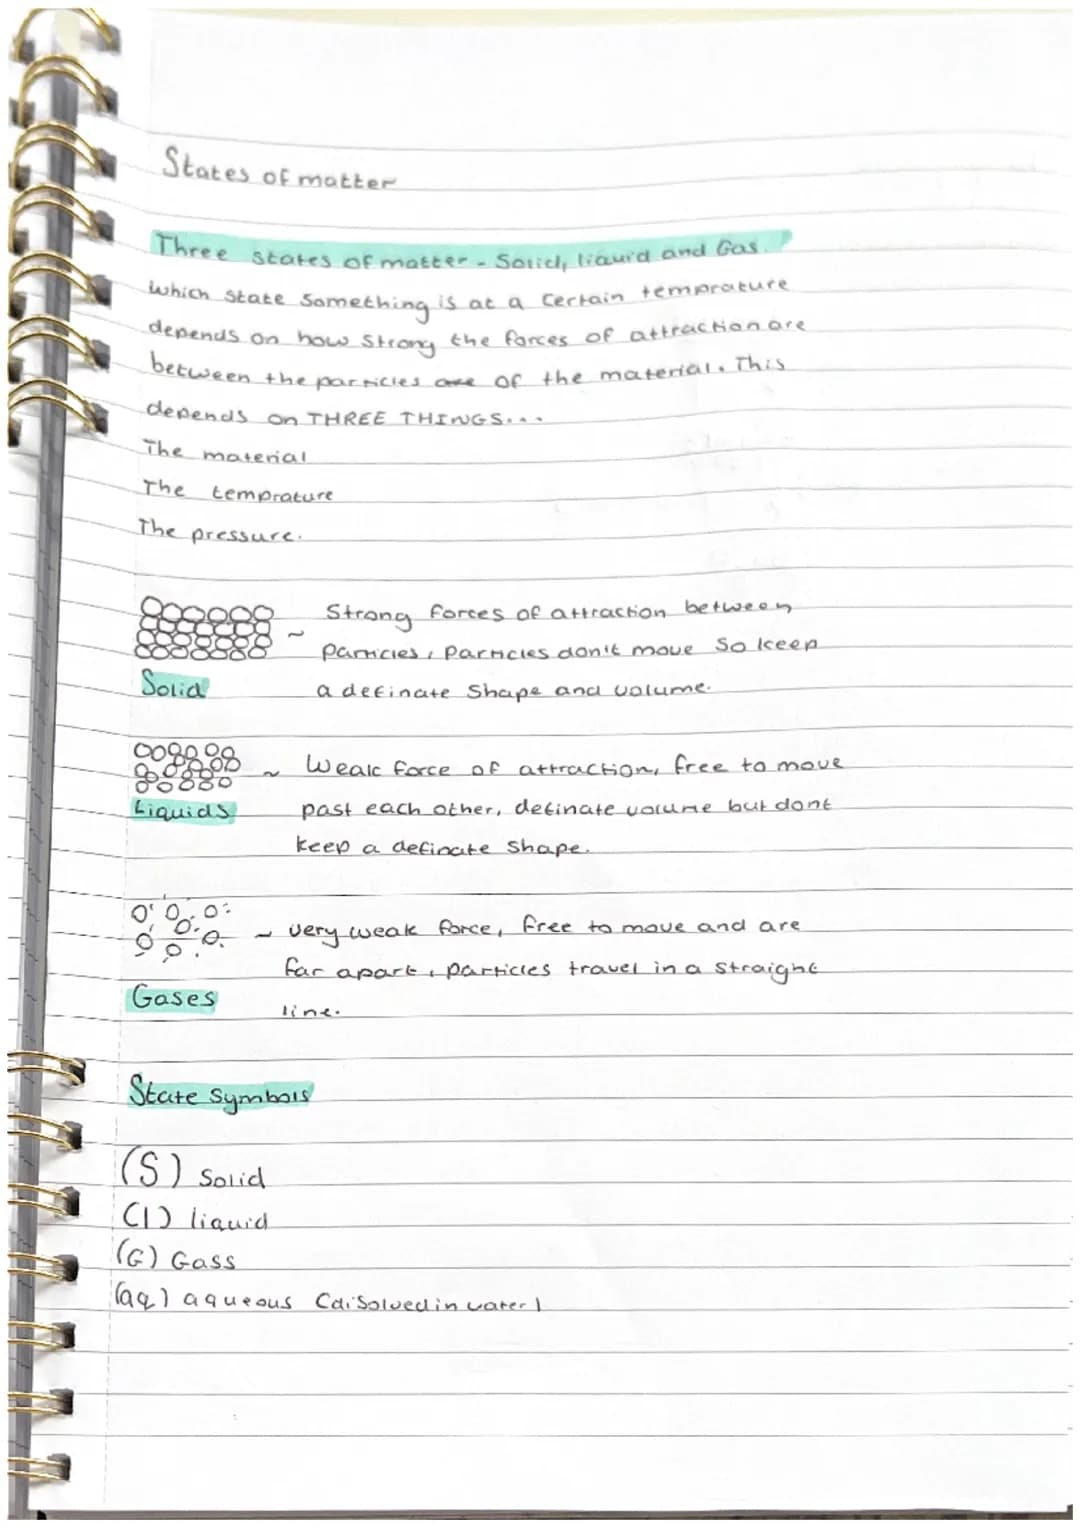 States of matter
Three states of matter - Solid, liquid and Gas.
Which state something is at a certain temprature
depends on how strong the forces of attraction are
between the particles are of the material. This
depends on THREE THINGS...
The material
The temprature
The pressure.
~ Strong forces of attraction between
particles, particles don't move so keep
Solid
a definate shape and volume.
~ Weak force of attraction, free to move
Liquids
past each other, definate volume but dont
keep a definate shape.
~ very weak force, free to move and are
far apart, particles travel in a straight
Gases
line.
State symbols
(S) solid
(l) liquid
(G) Gass
(aq) aqueous (disolved in water)